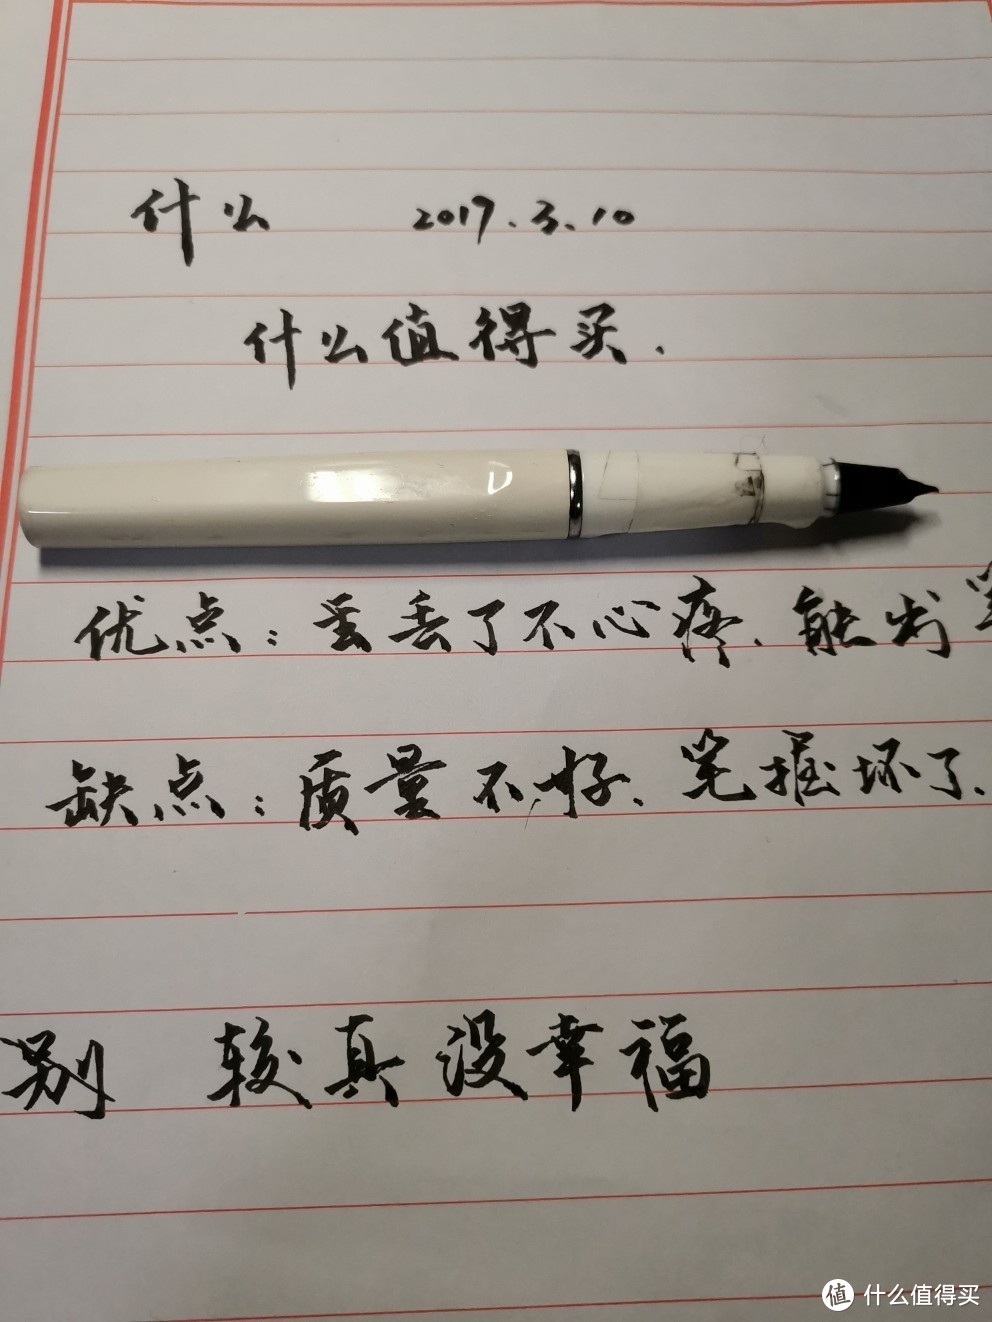 什么 2017.3.10
什么值得买.
优点:丢丢了不心疼.能出
缺点:质量不好.笔握坏了.
别 较真没幸福
值 什么值得买